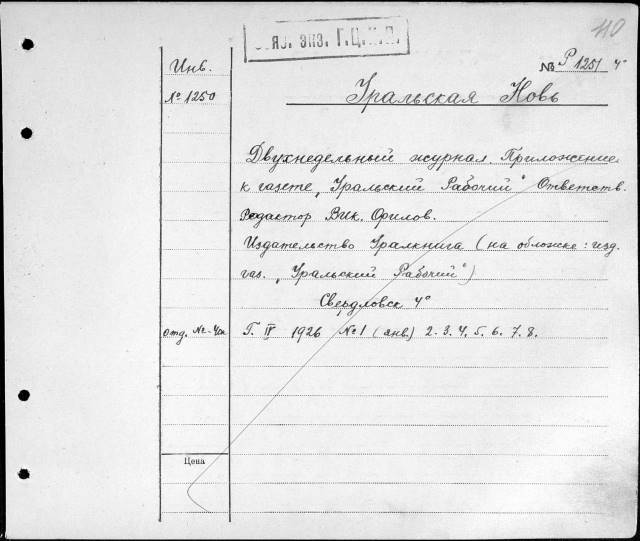 110
экз. Г.Ц.К.П.
Инв.
№ 1250
№ Р 1251 4°
Уральская Новь
Двухнедельный журнал Приложение
к газете „Уральский Рабочий" Ответств.
Редактор Вик. Филов.
Издательство Уралкнига (на обложке: изд.
газ. „Уральский Рабочий")
Свердловск 4°
отд. №-ча
Г. IV 1926 №1 (янв.) 2. 3. 4. 5. 6. 7. 8.
Цена